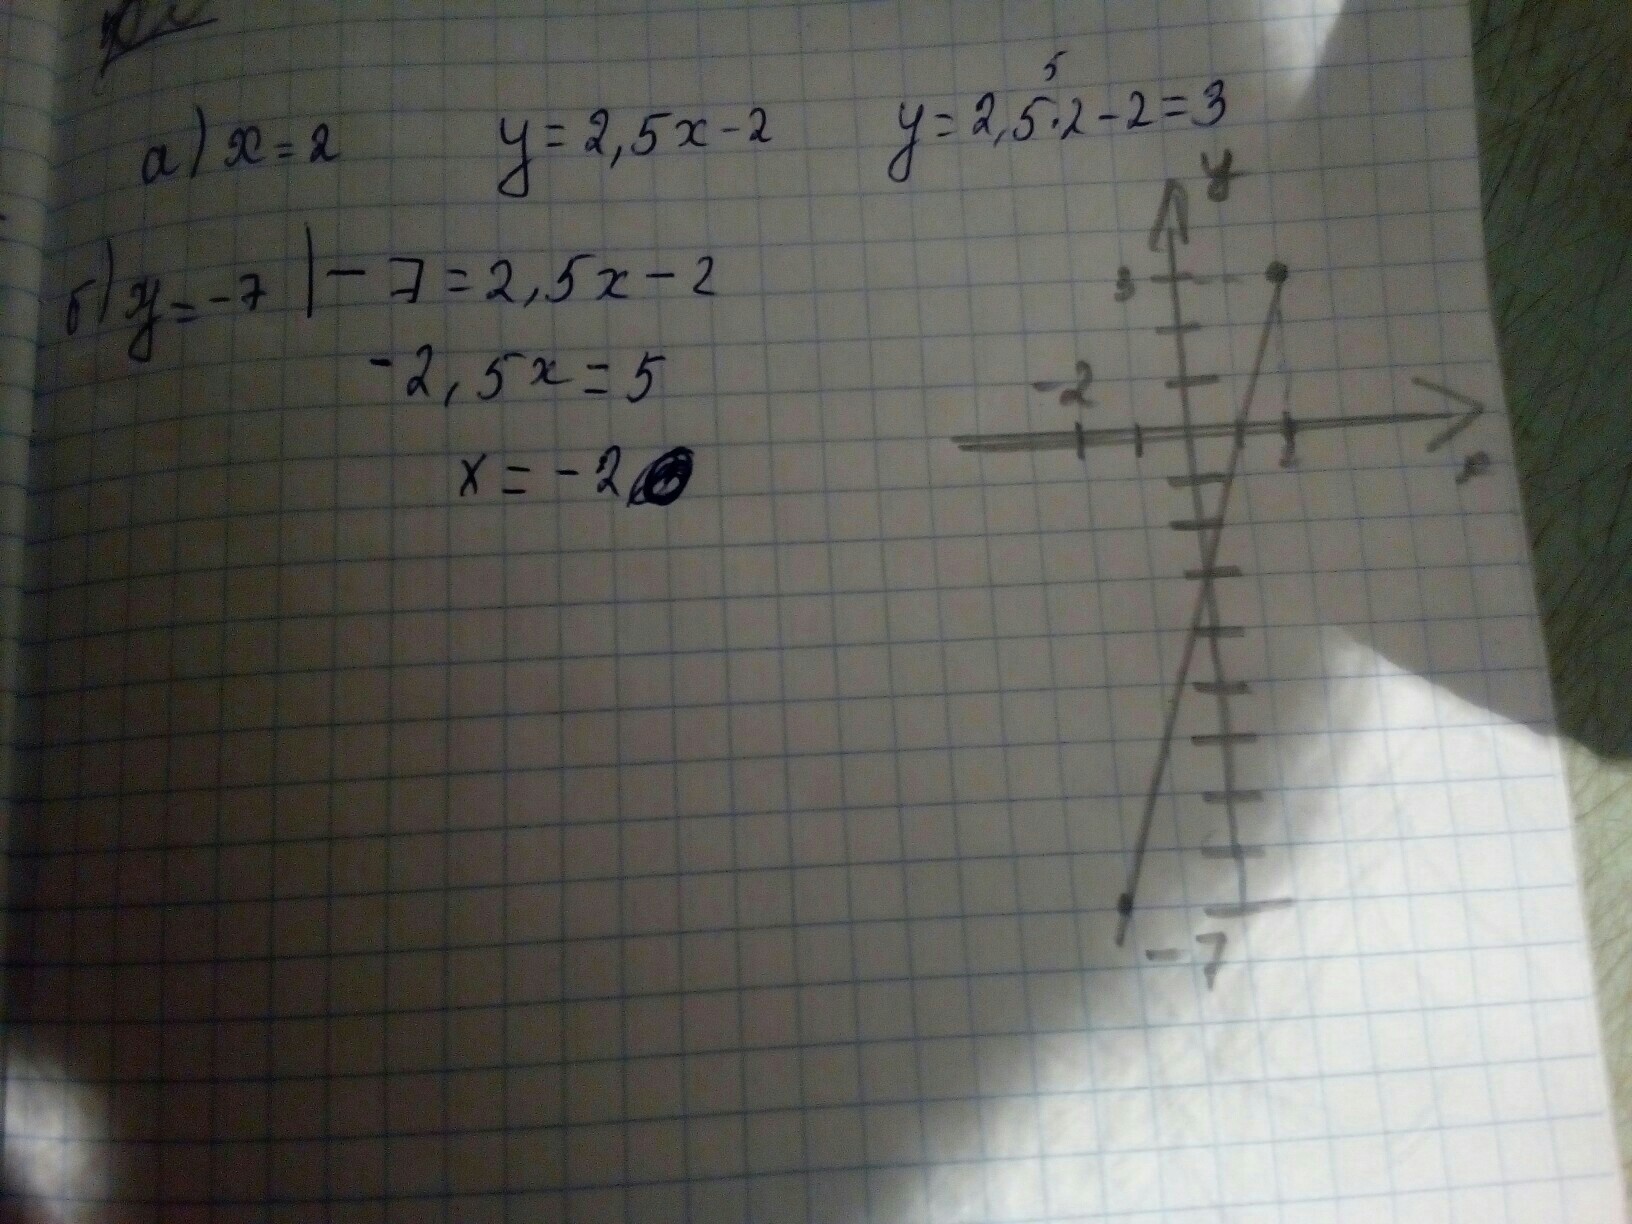 а) x = 2 y = 2,5x - 2 y = 2,5·2 - 2 = 3
5
б) y = -7 | - 7 = 2,5x - 2
-2,5x = 5
x = -2
y
3
-2 2
x
-7